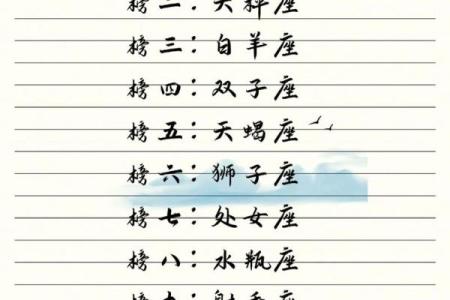 榜二：天秤座
榜三：白羊座
榜四：双子座
榜五：天蝎座
榜六：狮子座
榜七：处女座
榜八：水瓶座
榜九：射手座